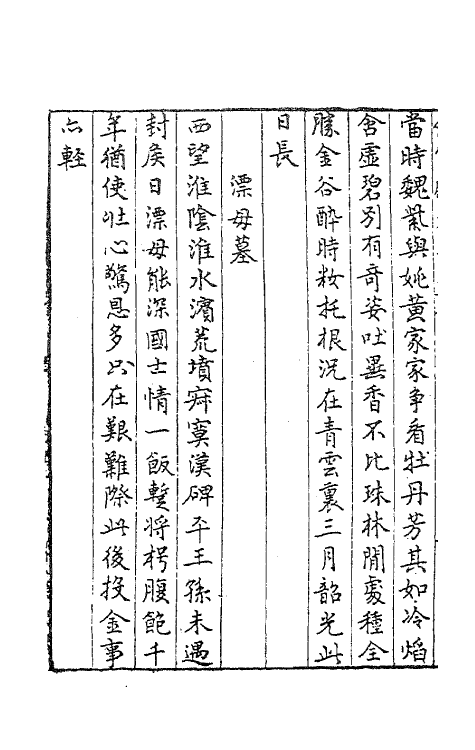 當時魏紫與姚黄家家争看牡丹芳其如冷熖
含虛碧别有奇姿吐異香不比珠林閒處種全
勝金谷醉時粧托根况在青雲裏三月韶光此
日長
漂母墓
西望淮陰淮水濱荒墳寂寞漢碑平王孫未遇
封侯日漂母能深國士情一飯暫將枵腹飽千
年猶使壯心驚恩多只在艱難際此後投金事
亦輕